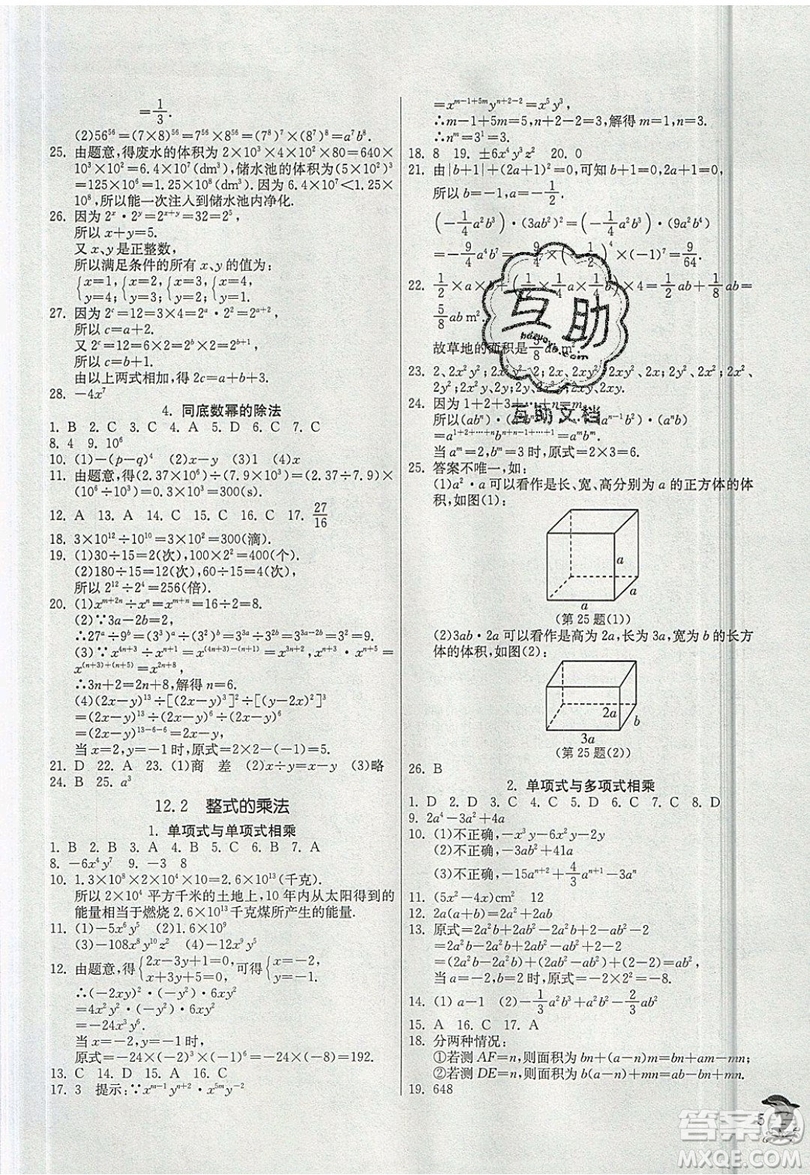 =1/3.
(2)56⁵⁶=(7×8)⁵⁶=7⁵⁶×8⁵⁶=(7⁸)⁷×(8⁷)⁸=a⁷b⁸.
25. 由题意,得废水的体积为2×10³×4×10²×80=640×
10³×10²=6.4×10⁷(dm³),储水池的体积为(5×10²)³
=125×10⁶=1.25×10⁸(dm³).因为6.4×10⁷<1.25×
10⁸,所以能一次注入到储水池内净化.
26. 因为2ˣ·2ʸ=2ˣ⁺ʸ=32=2⁵,
所以x+y=5.
又x、y是正整数,
所以满足条件的所有x、y的值为:
{x=1, {x=2, {x=3, {x=4,
{y=4; {y=3; {y=2; {y=1.
27. 因为2ᶜ=12=3×4=2ᵃ×2²=2ᵃ⁺²,
所以c=a+2.
因为2ᶜ=12=6×2=2ᵇ×2=2ᵇ⁺¹,
所以c=b+1.
由以上两式相加,得2c=a+b+3.
28. -4x⁷
4. 同底数幂的除法
1. B 2. C 3. C 4. A 5. C 6. C 7. C
8. 4 9. 10⁶
10. (1)-(p-q)⁴ (2)a⁴ (3)1 (4)x
11. 由题意,得(2.37×10⁶)÷(7.9×10³)=(2.37÷7.9)×
(10⁶÷10³)=0.3×10³=300(s).
12. A 13. A 14. C 15. C 16. C 17. 27/16
18. 3×10¹²÷10¹⁰=3×10²=300(滴).
19. (1)30÷15=2(次),200×2=400(个).
(2)180÷15=12(次),60÷15=4(次),
所以2¹²÷2⁴=256(倍).
20. (1)xᵐ⁺²ⁿ÷xⁿ=xᵐ⁺ⁿ=16÷2=8.
(2)∵3a-2b=4,
∴27ᵃ÷9ᵇ=(3³)ᵃ÷(3²)ᵇ=3³ᵃ⁻²ᵇ=3⁴=81.
(3)∵x⁴ⁿ⁺³÷xⁿ⁺¹=x⁽⁴ⁿ⁺³⁾⁻⁽ⁿ⁺¹⁾=x³ⁿ⁺²,xⁿ⁺³·xⁿ⁺⁵=
x⁽ⁿ⁺³⁾⁺⁽ⁿ⁺⁵⁾=x²ⁿ⁺⁸,
∴3n+2=2n+8,解得n=6.
(4)(2x-y)¹³÷[(2x-y)³]²÷[(y-2x)²]³
=(2x-y)¹³÷(2x-y)⁶÷(2x-y)⁶
=(2x-y)¹³⁻⁶⁻⁶=2x-y,
当x=2,y=-1时,原式=2×2-(-1)=5.
21. D 22. A 23. (1)商 差 (2)x÷y=x-y (3)略
24. B 25. a³
12.2 整式的乘法
1. 单项式与单项式相乘
1. B 2. B 3. C 4. D 5. B 6. B 7. A
8. -6x⁴y⁷ 9. -3 8
10. 1.3×10⁸×2×10⁴×10=2.6×10¹³(千克).
所以2×10⁴平方千米的土地上,一年内从太阳得到的
能量相当于燃烧2.6×10¹³千克煤所产生的能量.
11. (1)-5x⁶y⁵ (2)-18x⁹y⁵
(3)-108x⁸y¹⁰z² (4)-9x⁶y³
12. 由题意,得{2x-3y+1=0, 可得{x=-2,
{x+3y+5=0, {y=-1.
∴(-2xy)²·(-y²)·6xy²
=4x²y²·(-y²)·6xy²
=-24x³y⁶.
当x=-2,y=-1时,
原式=-24×(-2)³×(-1)⁶=-24×(-8)=192.
13. C 14. D 15. A 16. C
17. 3 提示:∵xᵐ⁻¹yⁿ⁺²·x⁵ᵐy⁻²
=xᵐ⁻¹⁺⁵ᵐyⁿ⁺²⁻²=x⁵y³,
∴m-1+5m=5,n+2-2=3,解得m=1,n=3.
∴nᵐ=3¹=3.
18. 8 19. ±6x⁴y³z² 20. 0
21. 由|b+1|+(2a+1)²=0,可知b=-1,
所以b=-1,a=-1/2.
(-1/4 a²b³)·(3ab²)²=(-1/4 a²b³)·(9a²b⁴)
=-9/4 a⁴b⁷=-9/4×(-1/2)⁴×(-1)⁷=9/64.
故草地的面积是5/8 ab m².
24. 因为1+2+3+…+n=m,
当m=2,b=3时,原式=2×3=6.
25. 答案不唯一,如:
(1)a²·a可以看作是长、宽、高分别为a的正方体的体
积,如图(1):
a
a
(第25题(1))
(2)3ab·2a可以看作是高为2a,长为3a,宽为b的长方
体的体积,如图(2):
2a
b
3a
(第25题(2))
26. B
2. 单项式与多项式相乘
1. D 2. D 3. C 4. C 5. D 6. B 7. C 8. D
9. 2a⁴-3a²+4a
10. (1)不正确,-x³y-6x²y-2y
(2)不正确,-x³+x²-x
(3)不正确,-15aⁿ⁺²+4/3 aⁿ⁺¹-3aⁿ
11. (5x²-4x)cm² 12
12. 2a(a+b)=2a²+2ab
13. 原式=2a²b+2ab²-2a²b+2-2ab²-2
=2a²b-2a²b+2ab²-2ab²+2-2
=(2a²b-2a²b)+(2ab²-2ab²)+(2-2)=0.
当a=-2,b=2时,原式=0.
14. (1)a-1 (2)-1/3 a²b³+a³b²-3ab²
15. A 16. C 17. A
18. 分两种情况:
①若测AF=n,则面积为bn+(a-n)m=bn+am-mn;
②若测DE=n,则面积为b(a-n)+mn=ab-bn+mn.
19. 648
互助
互助文档
5
答案
MXQE.COM